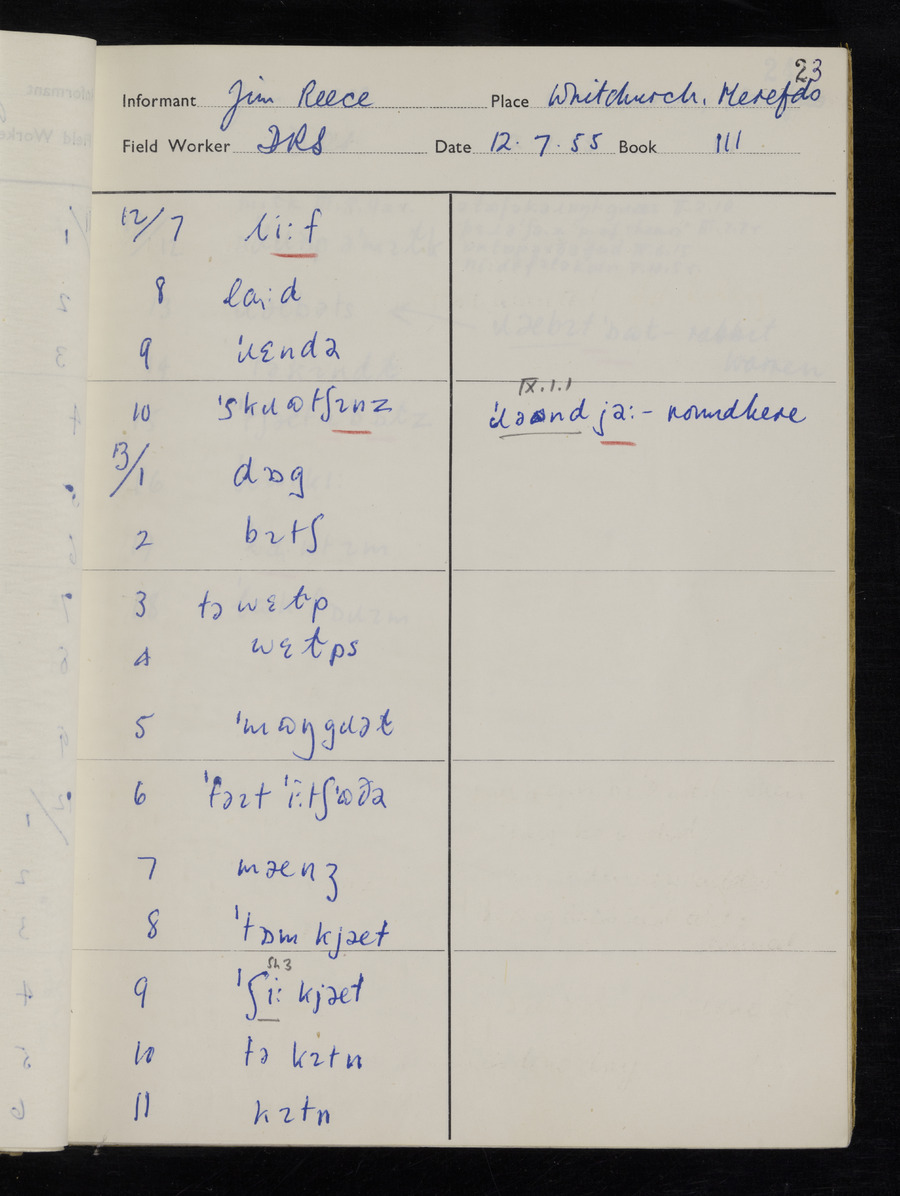 23
Informant Jim Reece Place Whitchurch. Herefds
Field Worker DRS Date 12. 7. 55 Book III
12/7 li:f
8 laːd
9 ˈɹɛndə
IX.1.1
10 ˈskɹatʃɪnz ˈɹəʊnd jəː - roundhere
13/1 dɒg
2 bɪtʃ
3 tə wɛɫp
4 wɛɫps
5 ˈmɷŋgɹəɫ
6 ˈtəɪt ˈiːtʃ ˈɷðə
7 mæɛnʒ
8 ˈtɒm kjæt
Sh 3
9 ˈʃiː kjæt
10 tə kɪtn
11 kɪtn